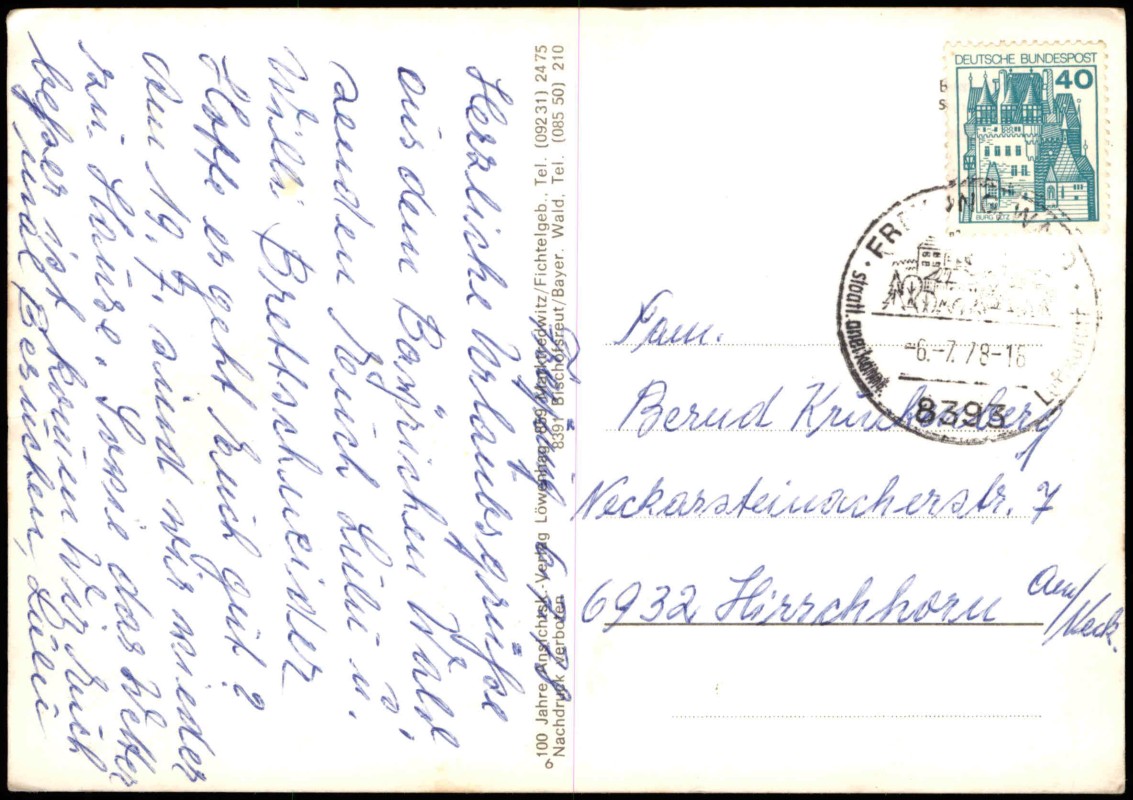 Freyung, 6.7.78
Herzliche Urlaubsgrüße
aus dem Bayrischen Wald,
senden Euch Lilli u.
Willi Brettschneider
Hoffe es geht Euch gut?
Am 19.7. sind wir wieder
zu Hause. Wenn das Wetter
besser ist kommen wir Euch
mal besuchen, Lilli
100 Jahre Ansichtsk.-Verlag Löwenhag, 859 Marktredwitz/Fichtelgeb. Tel. (092 31) 24 75
Nachdruck verboten 8391 Bischofsreut/Bayer. Wald, Tel. (085 50) 210
DEUTSCHE BUNDESPOST
40
BURG ELTZ
FREYUNG WALD
staatl. anerkannt. Luftkurort
-6.-7.78-16
8393
Fam.
Bernd
Neckarsteinacherstr. 7
6932 Hirschhorn am/Neck.